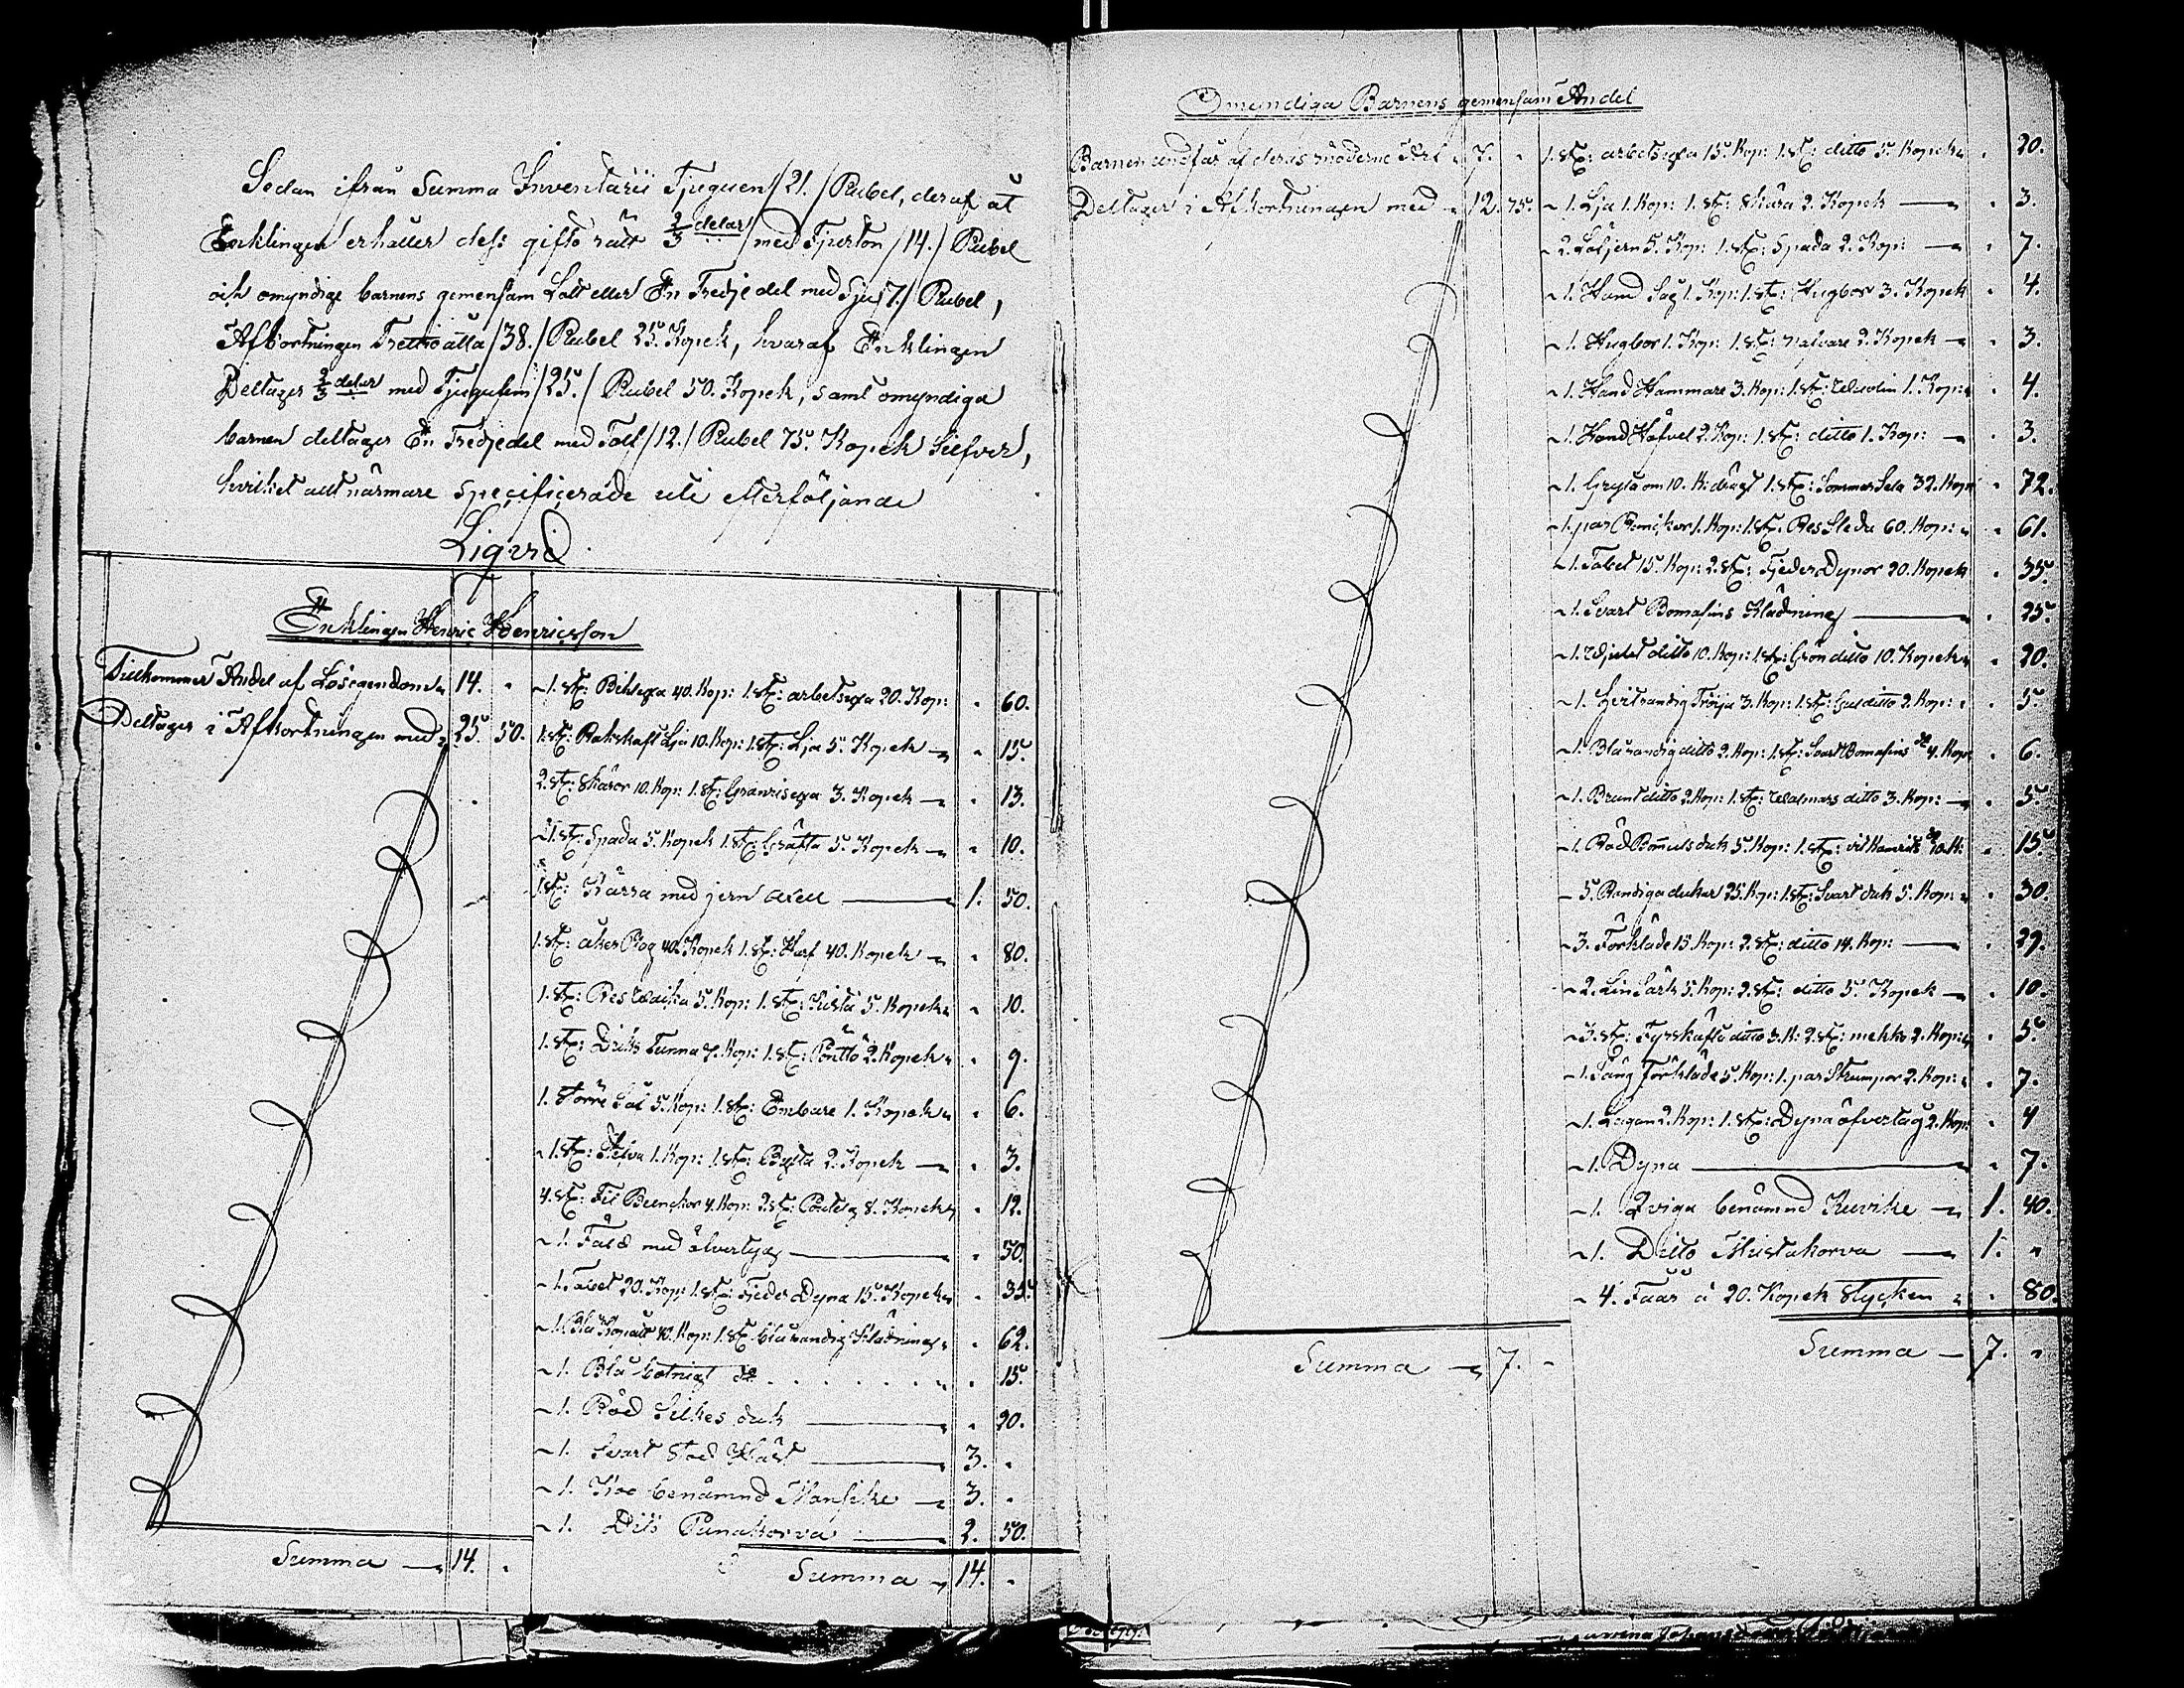 Sedan ifrån Summa Inventarii Tjuguen /21./ Rubel, deraf åt
Enklingen erhåller dess gifto rätt 2/3 delar med Fjorton /14./ Rubel
och omyndige barnens gemensam Lott eller En Tredje del med Sju /7./ Rubel,
Afkortningen Trettioåtta /38./ Rubel 25. Kopek, hvaraf Enklingen
Deltager 2/3 delar med Tjugufem /25./ Rubel 50. Kopek, samt omyndiga
barnen deltager En Tredjedel med Tolf /12./ Rubel 75. Kopek Silfver,
hvilket allt närmare specificerade uti efterföljande
Liqvid.
Enklingen Henric Henricsson
Tillkommer Andel af Lösegendomen 14. "
Deltager i Afkortningen med 25. 50.
Summa 14. "
1. St: Bilsyxa 40. Kop: 1. St: arbetsyxa 20. Kop: " 60.
1. St: Rakskaft Lia 10. Kop: 1. St: Lja 5. Kopek " 15.
2. St: Skäror 10. Kop: 1. St: Granrisyxa 3. Kopek " 13.
1. St: Spada 5. Kopek 1. St: Gräfta 5. Kopek " 10.
1. St: Kärra med jern axell 1. 50.
1. St: åker Plog 40. Kopek 1. St: Harf 40. Kopek " 80.
1. St: Res 5. Kop: 1. St: Kista 5. Kopek " 10.
1. St: Driks Tunna 7. Kop: 1. St: Pöntto 2. Kopek " 9.
1. Större Så 5. Kop: 1. St: Embare 1. Kopek " 6.
1. St: 1. Kop: 1. St: Bytta 2. Kopek " 3.
4. St: Fil Bunckor 4. Kop: 2. St: 8. Kopek " 12.
1. Fald med ölvertyg " 50.
1. Täcket 20. Kop: 1. St: Fjeder Dyna 15. Kopek " 35.
1. Blå 40. Kop: 1. St. blårandig Klädning " 62.
1. Blå botnigt do " 15.
1. Röd Silkes duk " 20.
1. Svart Stod Häst 3. "
1. Koo benämnd Mansike 3. "
1. Dito Punakorva 2. 50.
Summa 14. "
Omyndiga Barnens gemensam Andel
Barnen undfår af deras möderne Arf 7. "
Deltager i Afkortningen med 12. 75.
Summa 7. "
1. St: arbetsyxa 15. Kop: 1. St: ditto 5. Kopek " 20.
1. Lja 1. Kop: 1. St: Skära 2. Kopek " 3.
2. 5. Kop: 1. St: Spada 2. Kop: " 7.
1. Hand Såg 1. Kop: 1. St: Hugbor 3. Kopek " 4.
1. Hugbor 1. Kop: 1. St: nafvare 2. Kopek " 3.
1. Hand Hammare 3. Kop: 1. St: 1. Kop: " 4.
1. Hand Häfvel 2. Kop: 1. St: ditto 1. Kop: " 3.
1. Gryta om 10. K: 1. St: Sommar Sela 32. Kop " 72.
1. par 1. Kop: 1. St. Res Släda 60. Kop: " 61.
1. Täcket 15. Kop: 2. St: Fjeder Dynor 20. Kopek " 35.
1. Svart Bomasins Klädning " 25.
1. ditto 10. Kop: 1. St: Grön ditto 10. Kopek " 20.
1. Hvitrandig Tröija 3. Kop: 1. St: Gul ditto 2. Kop: " 5.
1. Blårandig ditto 2. Kop: 1. St: Svart Bomasins do 4. Kop " 6.
1. Brunt ditto 2. Kop: 1. St: Walmars ditto 3. Kop: " 5.
1. Röd Bomuls duk 5. Kop: 1. St: vit do 10. K: " 15.
5. Randiga dukar 25. Kop: 1. St: Svart duk 5. Kop: " 30.
3. Förkläde 15. Kop: 2. St: ditto 14. Kop: " 29.
2. Lin Särk 5. Kop: 2. St: ditto 5. Kopek " 10.
3. St: Fyrskäfts ditto 3. K: 2. St: mekko 2. Kop: " 5.
1. Säng Förkläde 5. Kop: 1. par Strumpor 2. Kop: " 7.
1. Lagan 2. Kop: 1. St: Dyna öfvertag 2. Kop: " 4
1. Dyna " 7.
1. Qviga benämnd Kuvike 1. 40.
1. Ditto Mustakorva 1. "
4. Fåår à 20. Kopek Stycken " 80.
Summa 7. "